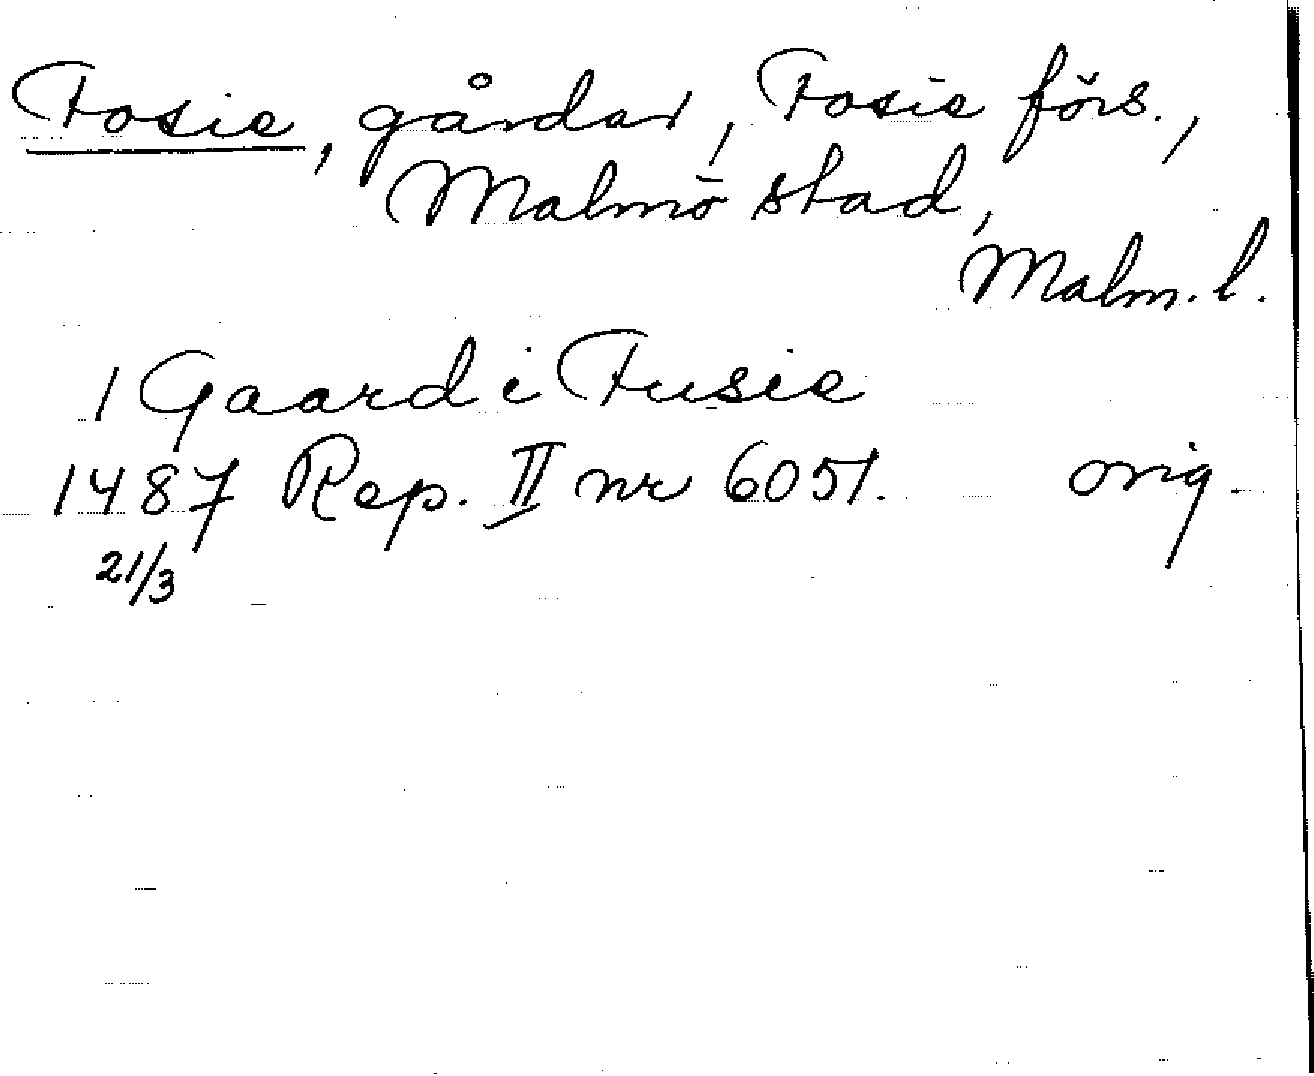 Fosie, gårdar, Fosie förs.,
Malmö stad,
Malm. l.
1 Gaard i Fusie
1487 Rep. II nr 6051. orig.
21/3